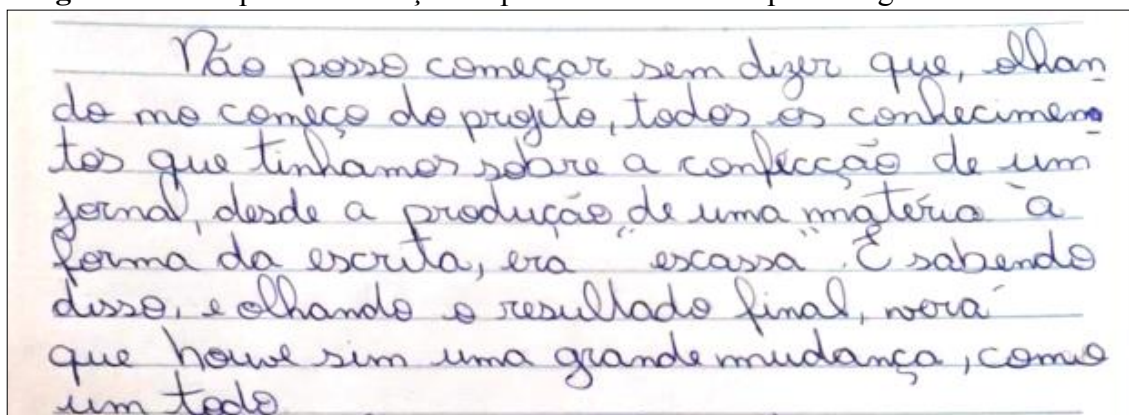 Não posso começar sem dizer que, olhan
do no começo do projeto, todos os conhecimen
tos que tínhamos sobre a confecção de um
jornal, desde a produção de uma matéria à
forma da escrita, era "escassa". E sabendo
disso, e olhando o resultado final, verá
que houve sim uma grande mudança, como
um todo.